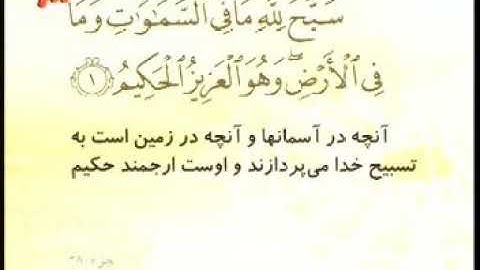 سَبَّحَ لِلَّهِ مَا فِي السَّمَـٰوَٰتِ وَمَا
فِي الْأَرْضِ ۖ وَهُوَ الْعَزِيزُ الْحَكِيمُ ﴿١﴾
آنچه در آسمانها و آنچه در زمین است به
تسبیح خدا می‌پردازند و اوست ارجمند حکیم